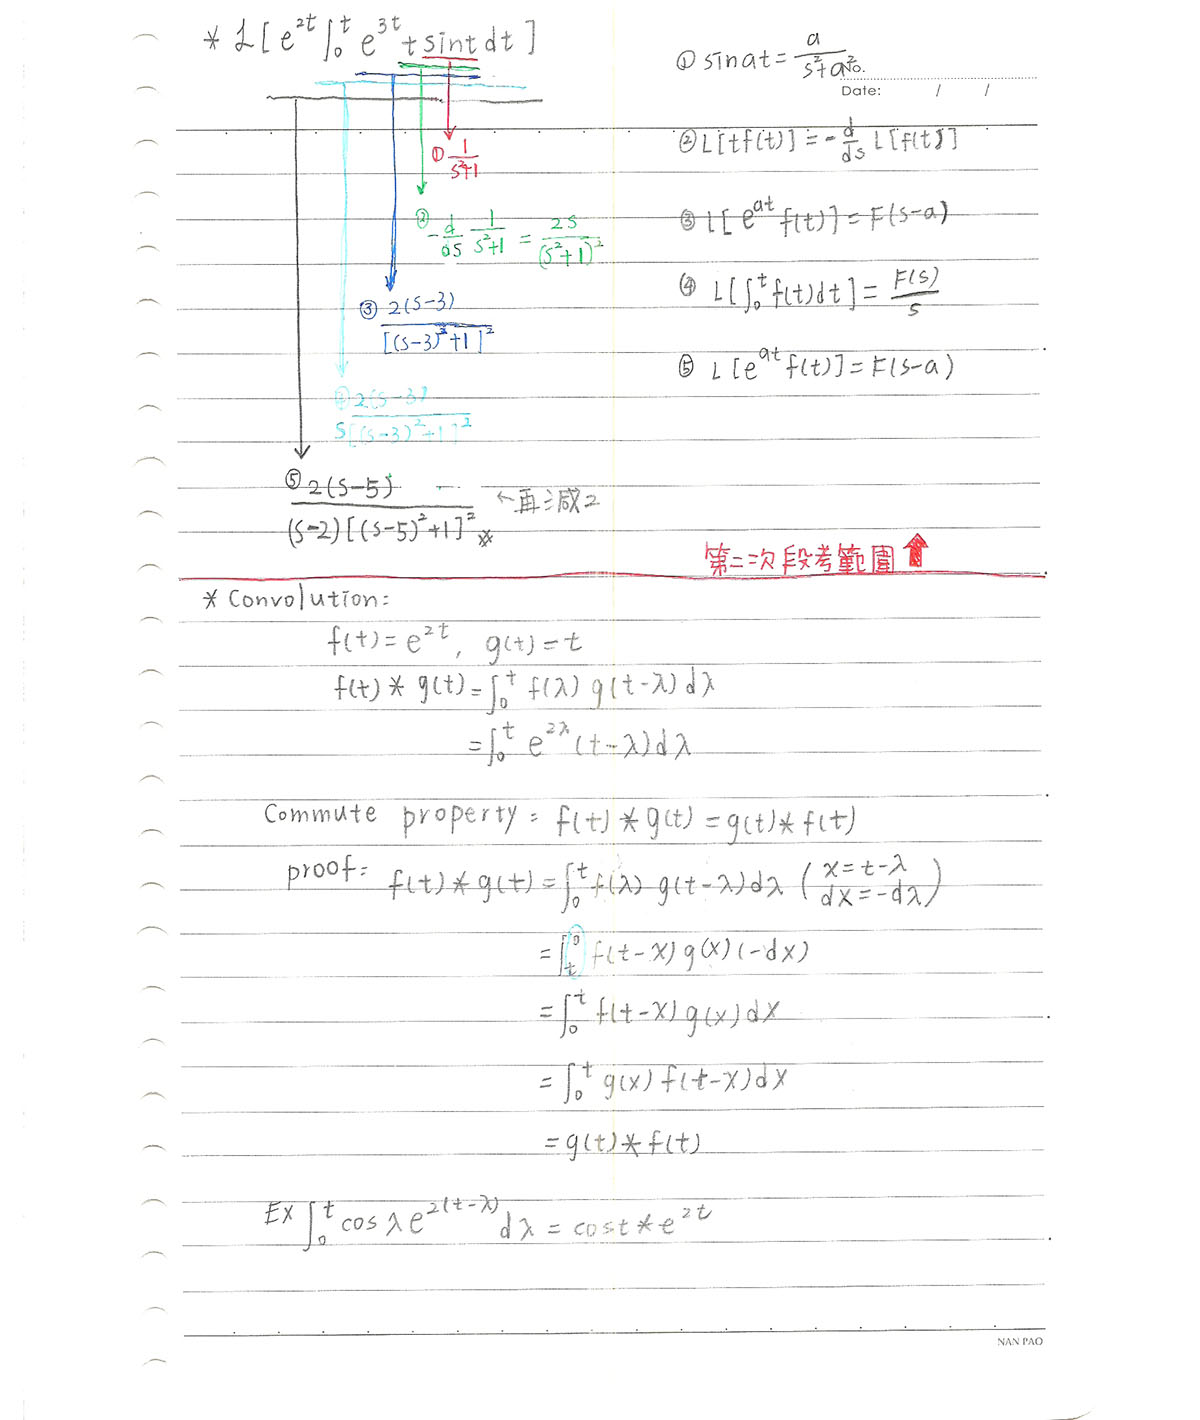 * L[e^{2t}∫₀ᵗ e^{3t} t sint dt]
① sin at = a/(s²+a²)
No.
Date: / /
① 1/(s²+1)
② L[tf(t)] = -d/ds L[f(t)]
② -d/ds 1/(s²+1) = 2s/(s²+1)²
③ L[e^{at} f(t)] = F(s-a)
③ 2(s-3)/[(s-3)²+1]²
④ L[∫₀ᵗ f(t)dt] = F(s)/s
⑤ L[e^{at} f(t)] = F(s-a)
④ 2(s-3)/s[(s-3)²+1]²
⑤ 2(s-5)/(s-2)[(s-5)²+1]² ※ ←再減2
第二次段考範圍 ↑
* Convolution:
f(t)=e^{2t}, g(t)=t
f(t)*g(t)=∫₀ᵗ f(λ) g(t-λ)dλ
=∫₀ᵗ e^{2λ}(t-λ)dλ
Commute property: f(t)*g(t)=g(t)*f(t)
proof: f(t)*g(t)=∫₀ᵗ f(λ) g(t-λ)dλ (x=t-λ
dx=-dλ)
=∫ₜ⁰ f(t-x)g(x)(-dx)
=∫₀ᵗ f(t-x)g(x)dx
=∫₀ᵗ g(x)f(t-x)dx
=g(t)*f(t)
EX ∫₀ᵗ cosλe^{2(t-λ)}dλ = cost*e^{2t}
NAN PAO